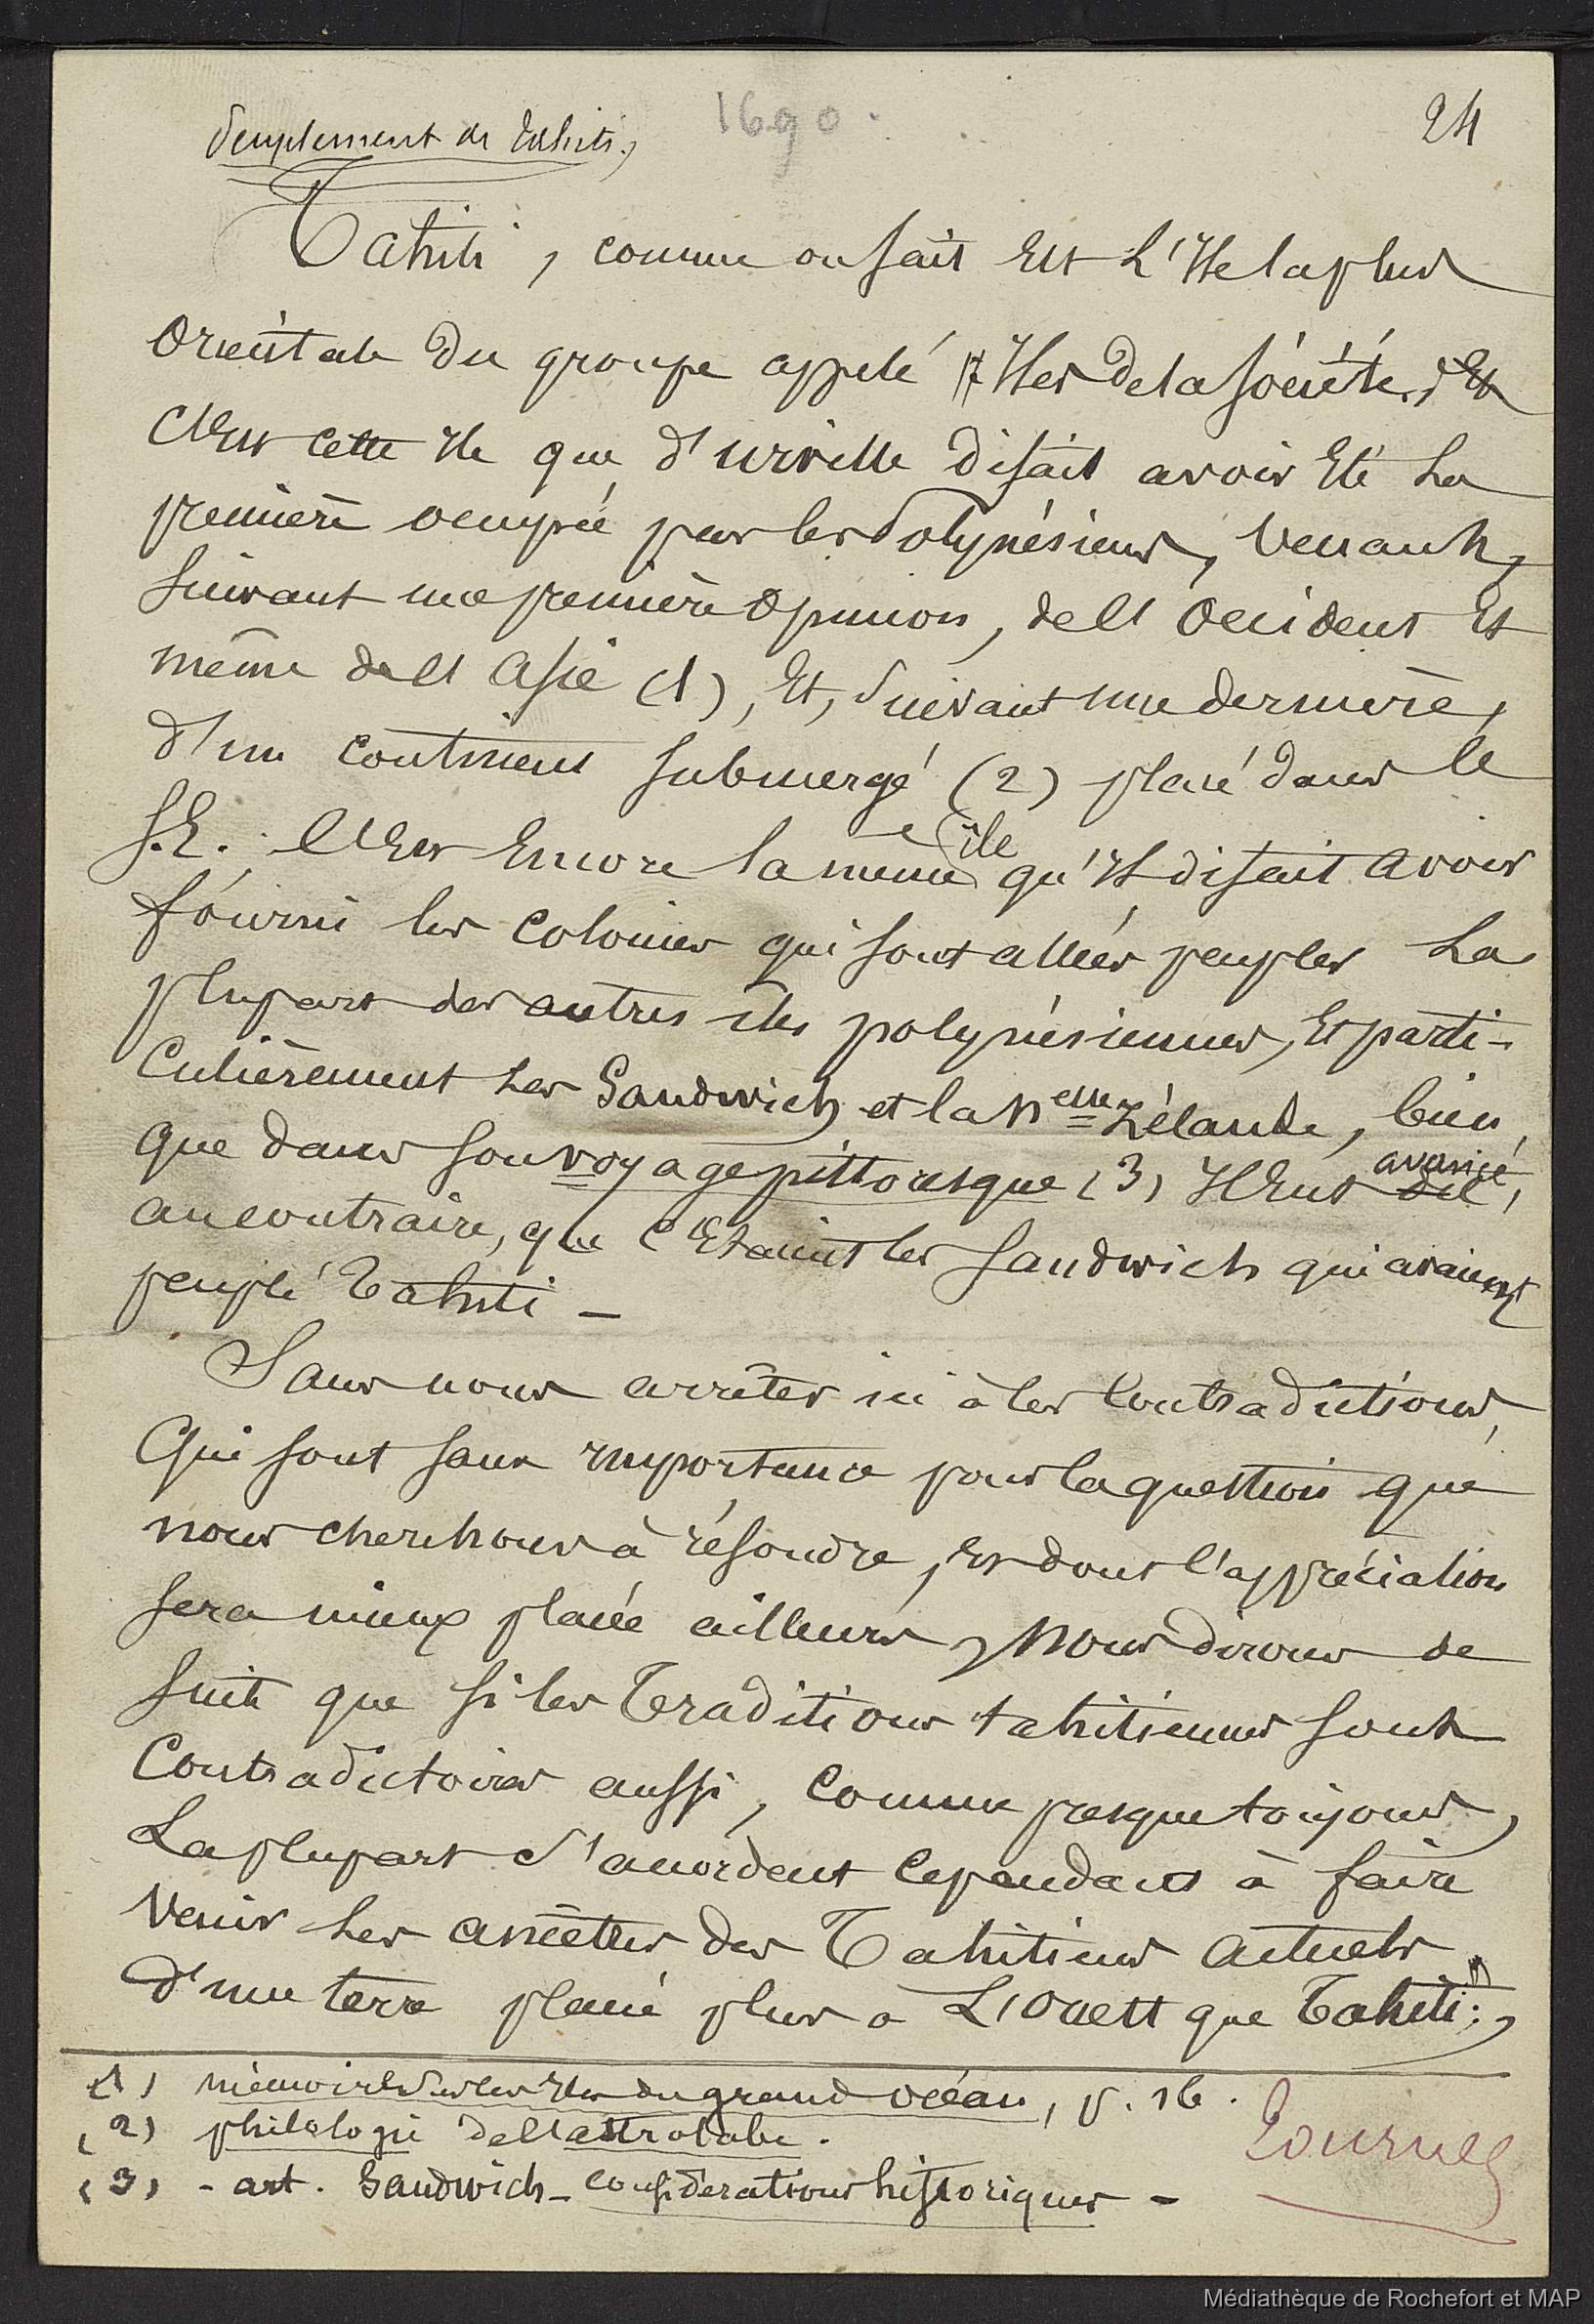 Peuplement de Tahiti,
1690.
24
Tahiti, comme on sait est l'Ile la plus
Orientale du groupe appelé Iles de la Société, et
c'est cette île que d'urville disait avoir été la
première occupée par les Polynésiens, venant,
suivant une première opinion, de l'Occident et
même de l'Asie (1), et, suivant une dernière,
d'un continent submergé (2) placé dans le
S.E. ; c'est encore la même île qu'il disait avoir
fourni les colonies qui sont allées peupler la
plupart des autres îles polynésiennes, et parti-
culièrement les Sandwich et la Nelle Zélande, bien
que dans son voyage pittoresque (3) Il eut dit avancé,
au contraire, que c'étaient les Sandwich qui avaient
peuplé Tahiti -
Sans nous arrêter ici à les Contradictions,
Qui sont sans importance pour la question que
nous cherchons à résoudre, et dont l'appréciation
sera mieux placée ailleurs, nous dirons de
suite que si les Traditions tahitiennes sont
Contradictoires aussi, comme presque toujours,
La plupart s'accordent cependant à faire
venir les ancêtres des Tahitiens actuels
d'une terre placée plus à L'Ouest que Tahiti ;
(1) mémoire sur les Iles du grand océan, p. 16.
(2) philologie de l'astrolabe.
(3) - art. Sandwich - considerations historiques -
Tournez
Médiathèque de Rochefort et MAP